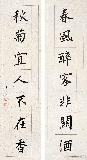 春風醉客非關酒
秋菊宜人不在香